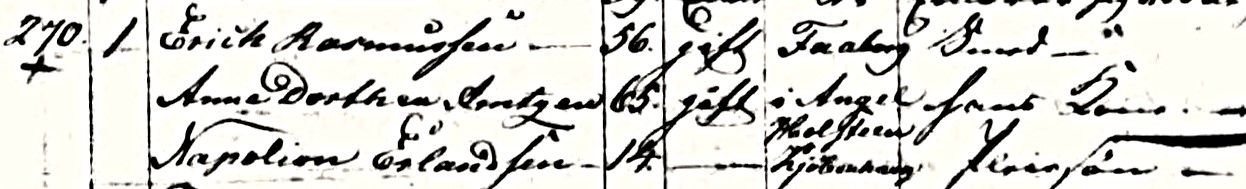 270. 1 Erich Rasmussen — 56. gift Faaborg Smed —
+ Anne Dorthea Arntzen 65. gift i Angel hans Kone. —
Holsteen
Napolion Erlandsen — 14. — Kjöbenhavn Pleiesön —